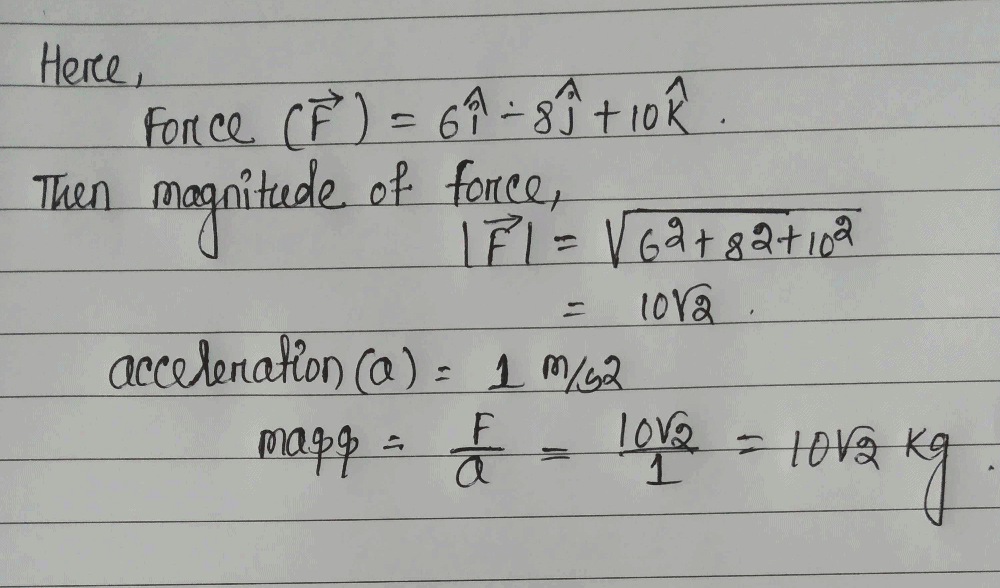 Here,
Force (F⃗) = 6î - 8ĵ + 10k̂.
Then magnitude of force,
|F⃗| = √(6²+8²+10²)
= 10√2.
acceleration (a) = 1 m/s2
mass = F/a = 10√2/1 = 10√2 kg.